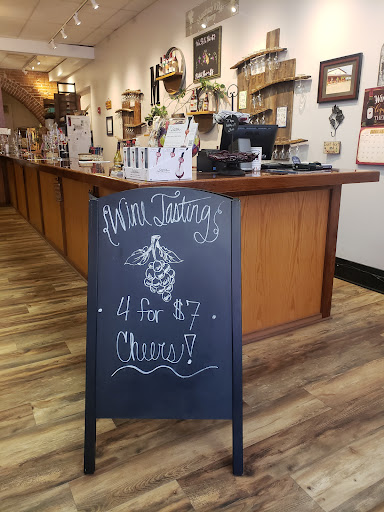 Wine Tasting
4 for $7
Cheers!